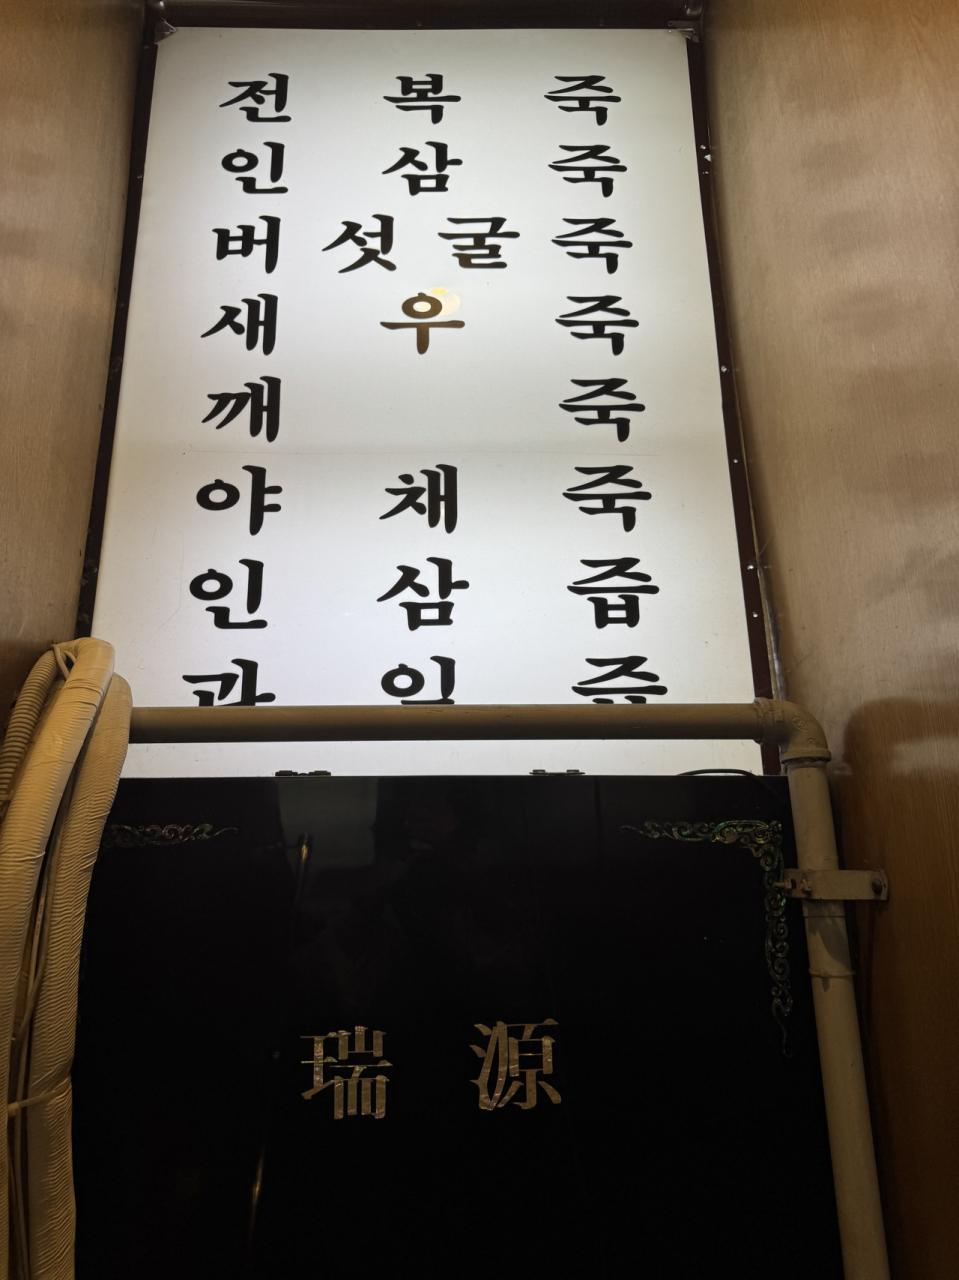 전 복 죽
인 삼 죽
버 섯 굴 죽
새 우 죽
깨 죽
야 채 죽
인 삼 즙
瑞 源